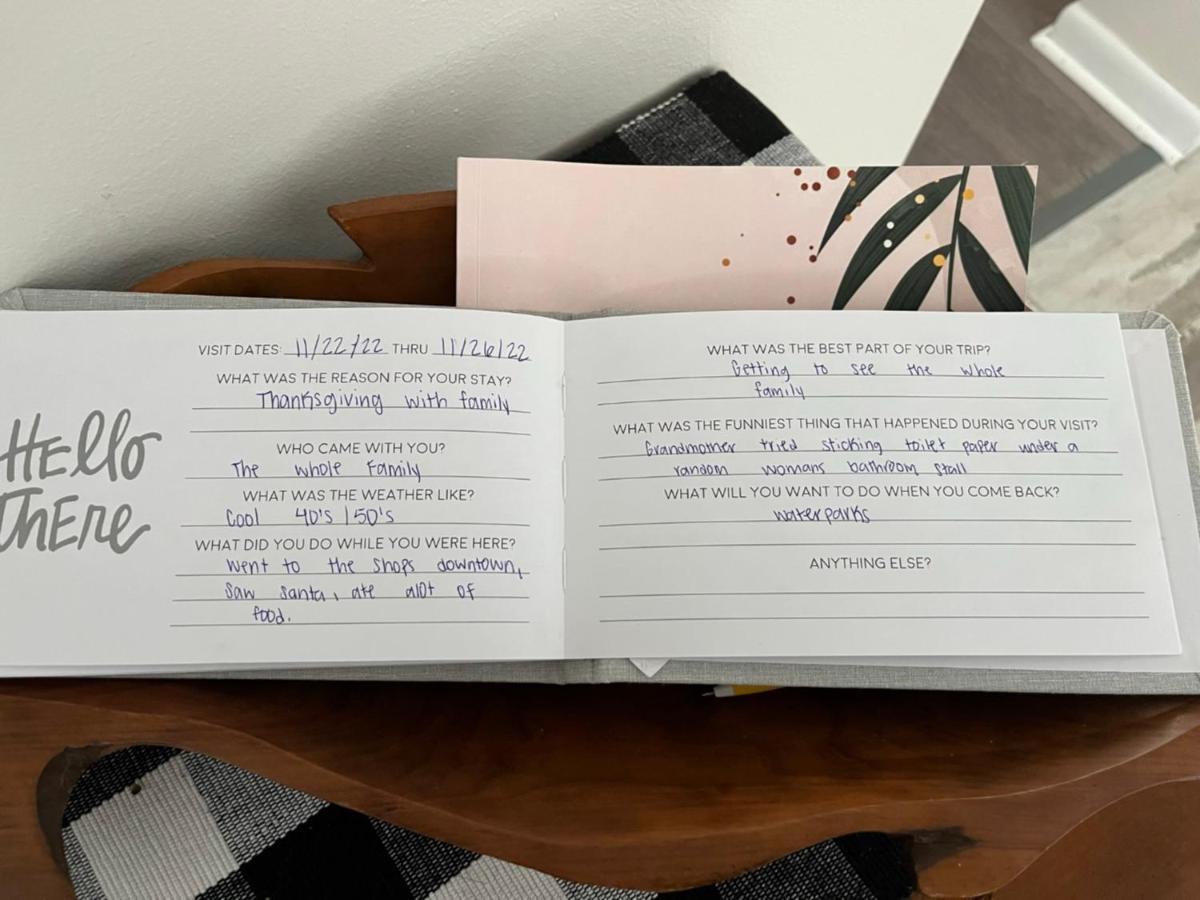 HEllo
ThEre
VISIT DATES: 11/22/22 THRU 11/26/22
WHAT WAS THE REASON FOR YOUR STAY?
Thanksgiving with family
WHO CAME WITH YOU?
The whole Family
WHAT WAS THE WEATHER LIKE?
Cool 40's / 50's
WHAT DID YOU DO WHILE YOU WERE HERE?
Went to the shops downtown,
saw santa, ate alot of
food.
WHAT WAS THE BEST PART OF YOUR TRIP?
Getting to see the whole
family
WHAT WAS THE FUNNIEST THING THAT HAPPENED DURING YOUR VISIT?
Grandmother tried sticking toilet paper under a
random womans bathroom stall
WHAT WILL YOU WANT TO DO WHEN YOU COME BACK?
waterparks
ANYTHING ELSE?